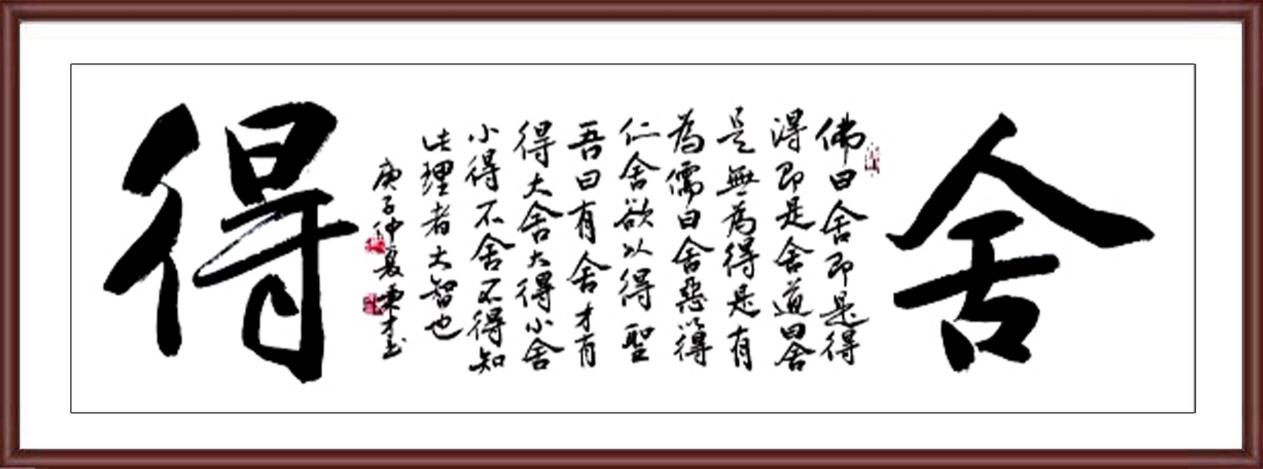 舍
佛曰舍即是得
得即是舍道曰舍
是無為得是有
為儒曰舍惡以得
仁舍欲以得聖
吾曰有舍才有
得大舍大得小舍
小得不舍不得知
此理者大智也
庚子仲夏 才书
得